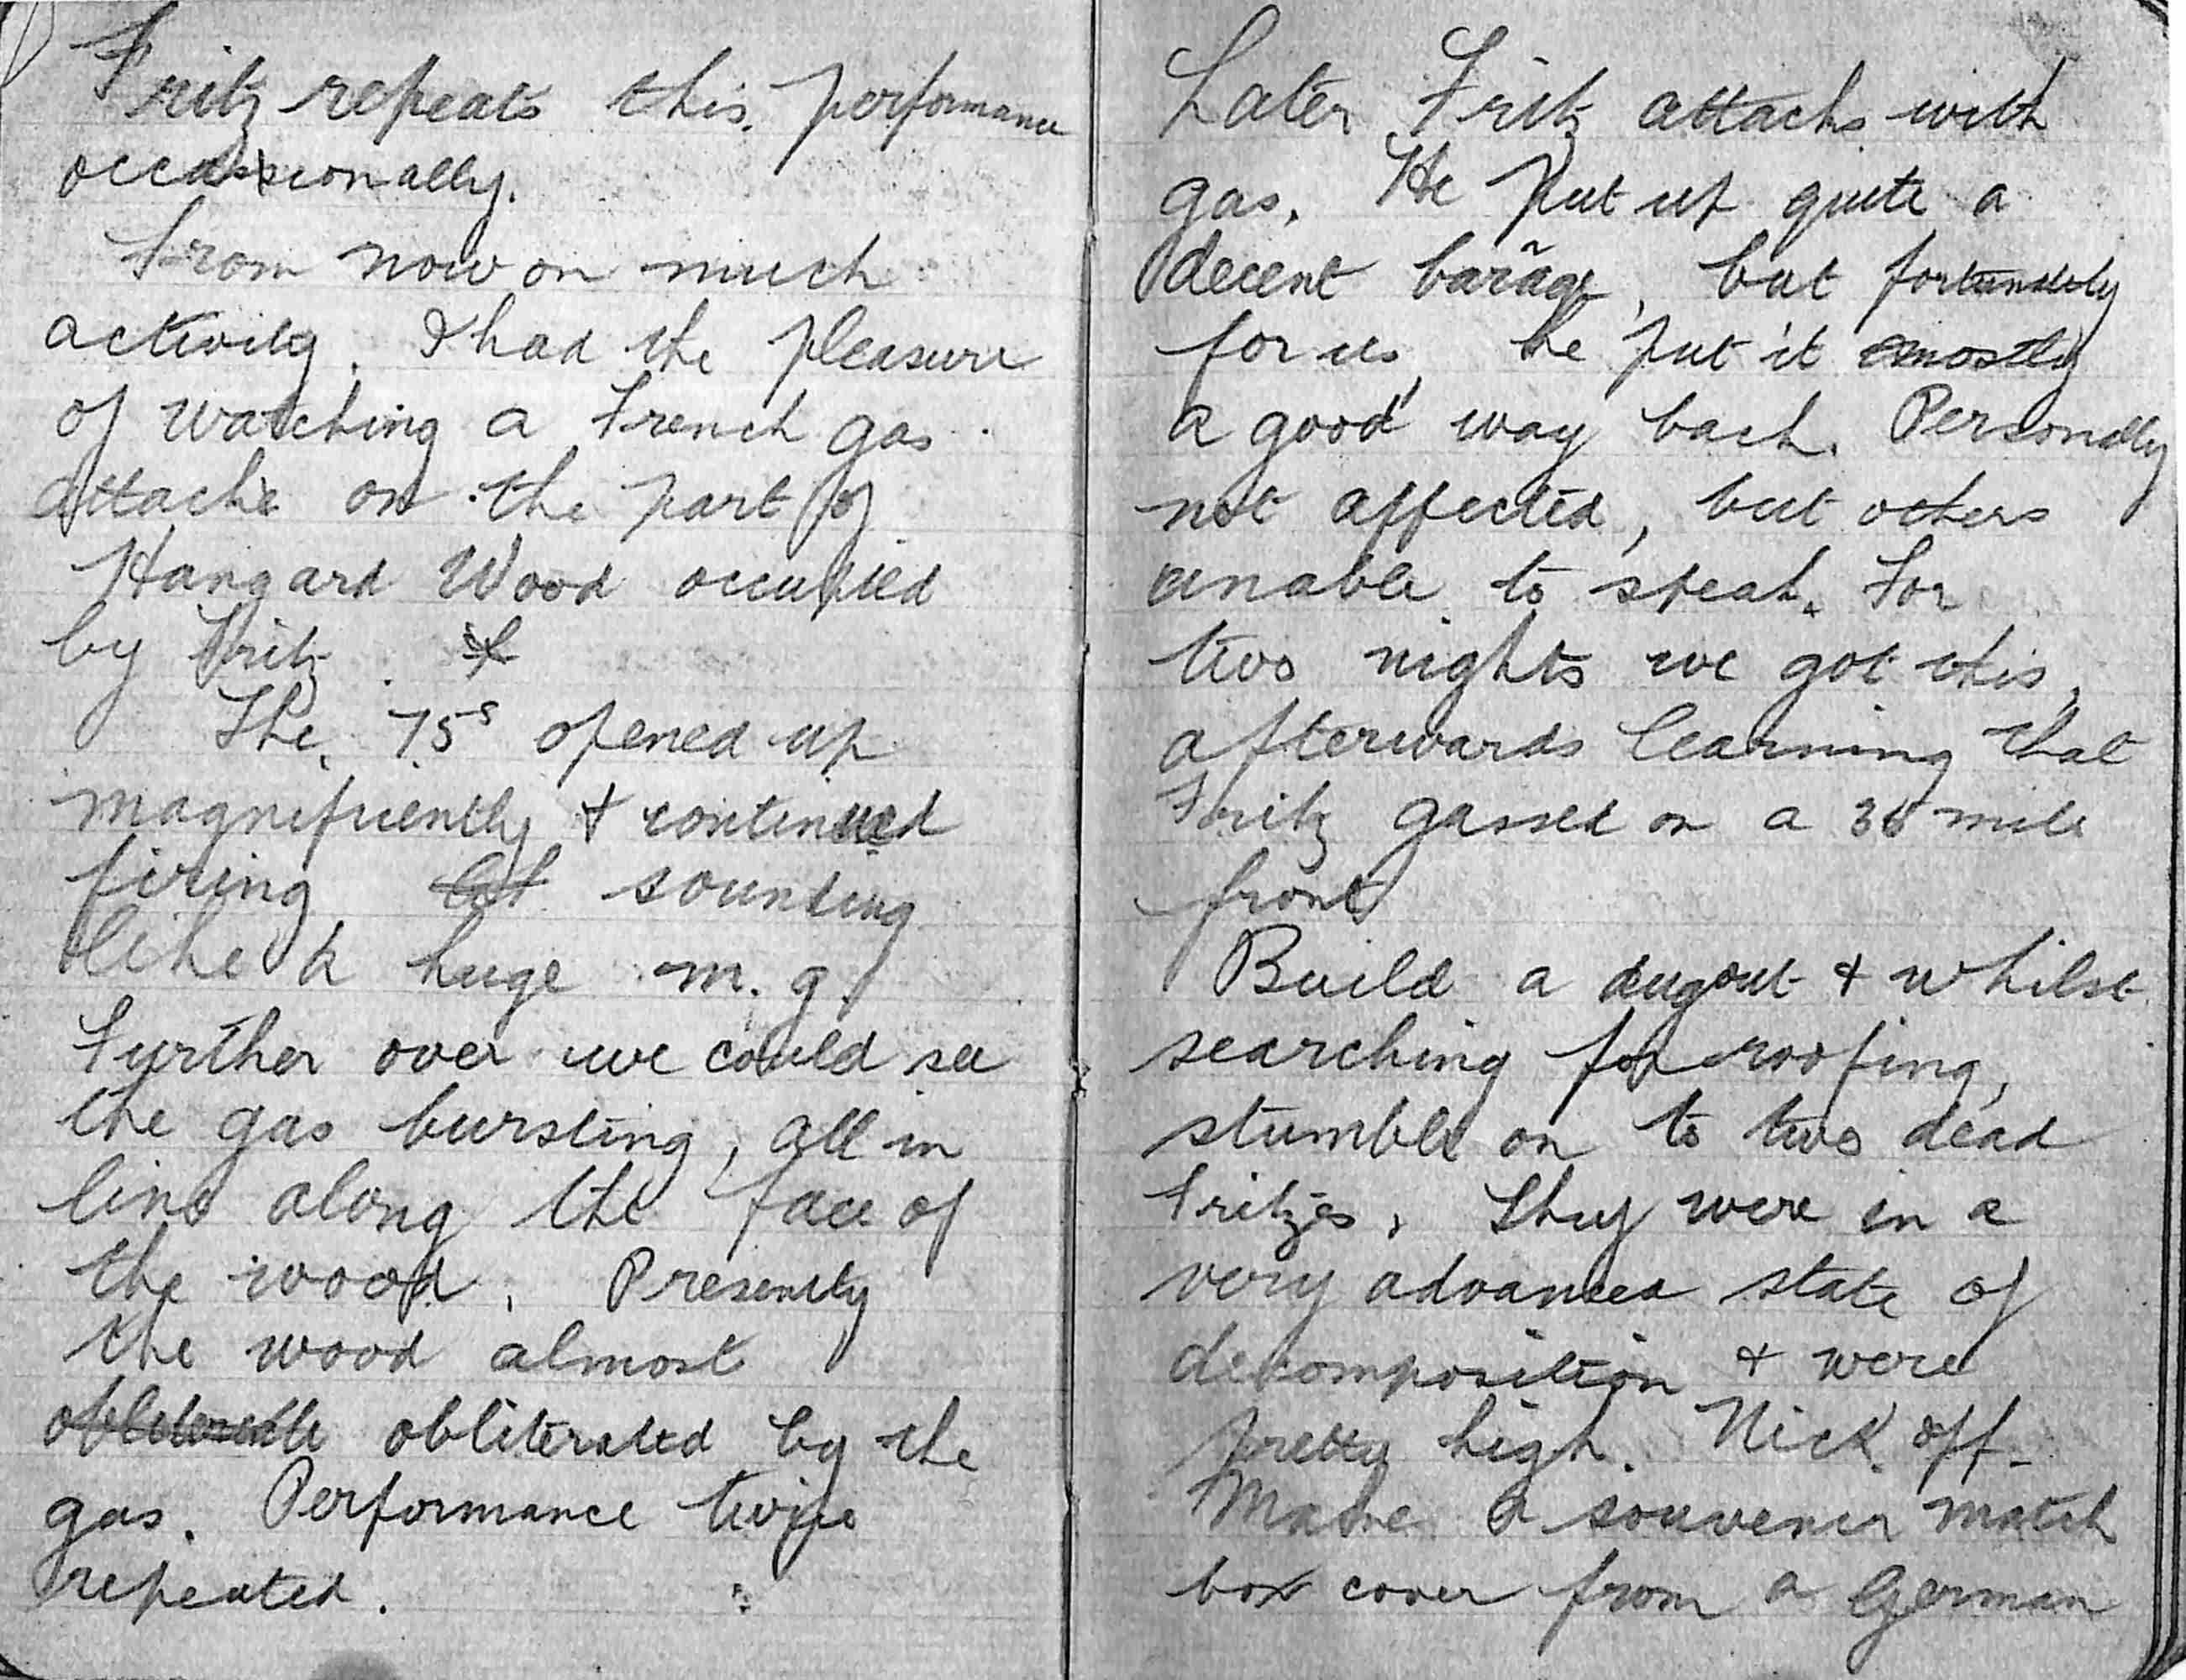 Fritz repeats this performance
occassionally.
From now on much
activity. I had the pleasure
of watching a French gas
attache on the part of
Hangard Wood occupied
by Fritz.
The 75s opened up
magnificently & continued
firing sounding
like a huge m.g.
Further over we could see
the gas bursting, all in
line along the face of
the wood. Presently
the wood almost
obliterated by the
gas. Performance twice
repeated.
Later Fritz attacks with
gas. He put up quite a
decent barãge, but fortunately
for us, he put it mostly
a good way back. Personally
not affected, but others
unable to speak. For
two nights we got this,
afterwards learning that
Fritz gassed on a 30 mile
front
Build a dugout & whilst
searching for roofing,
stumble on to two dead
Fritzes. They were in a
very advanced state of
decomposition & were
pretty high. Nick off.
Made a souvenir match
box cover from a German